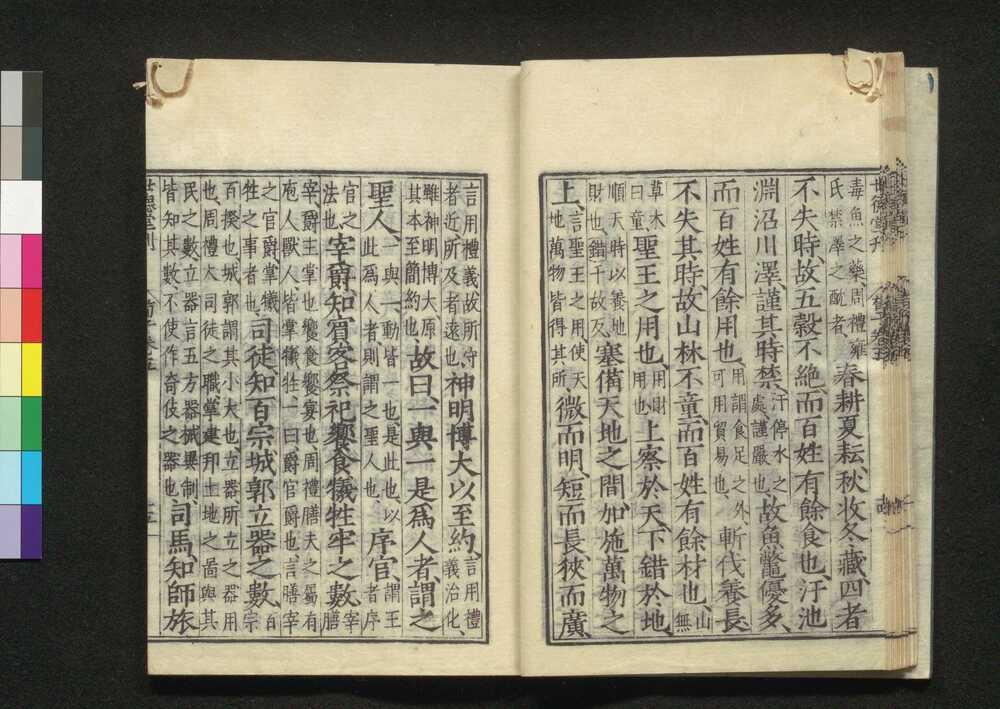 世德堂刊
毒魚之藥周禮雍
氏禁澤之酖者
春耕夏耘秋收冬藏四者
不失時故五穀不絶而百姓有餘食也汙池
淵沼川澤謹其時禁
汙停水之
處謹嚴也
故魚鼈優多
而百姓有餘用也
用謂食足之外
可用貿易也
斬伐養長
不失其時故山林不童而百姓有餘材也
山
無
草木
曰童
聖王之用也
用財
用也
上察於天下錯於地
順天時以養地
財也錯千故反
塞備天地之間加施萬物之
上
言聖王之用使天
地萬物皆得其所
微而明短而長狹而廣
言用禮義故所守
者近所及者遠也
神明博大以至約
言用禮
義治化
雖神明博大原
其本至簡約也
故曰一與一是爲人者謂之
聖人
一與一動皆一也是此也以
此爲人者則謂之聖人也
序官
謂王
者序
官之
法也
宰爵知賓客祭祀饗食犧牲牢之數
宰
膳
宰爵主掌也饗食饗宴也周禮膳夫之屬有
庖人獸人皆掌犧牲一曰爵官爵也言膳宰
之官爵掌犧
牲之事者也
司徒知百宗城郭立器之數
百
宗
百揆也城郭謂其小大也立器所立之器用
也周禮大司徒之職掌建邦土地之啚與其
民之數立器言五方器械異制
皆知其數不使作奇伎之器也
司馬知師旅